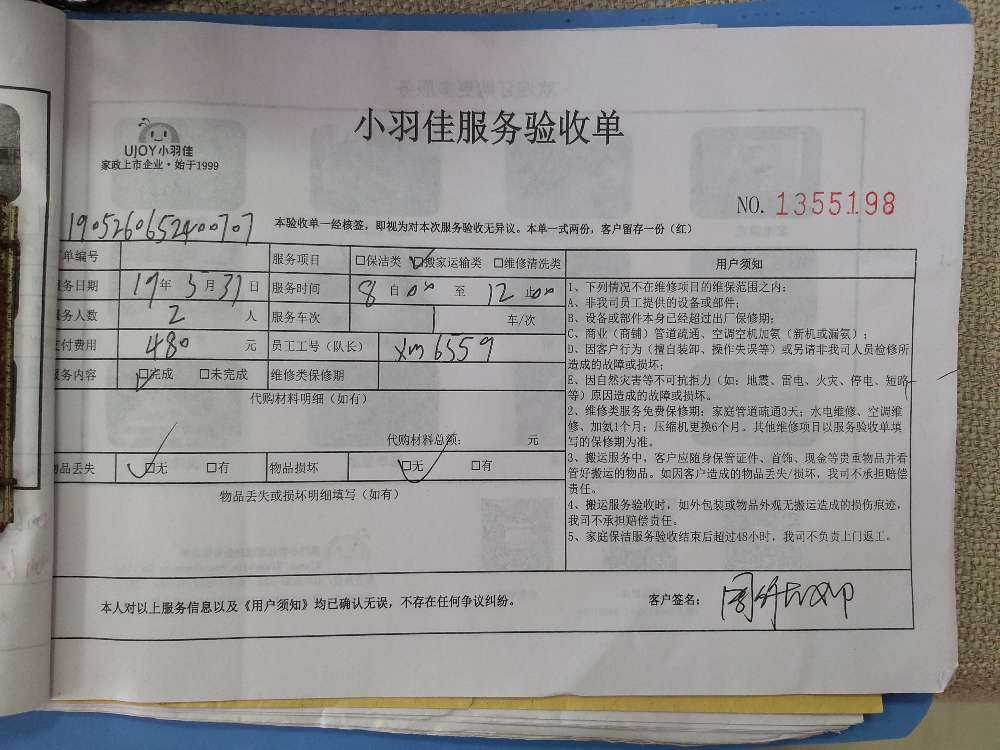 小羽佳服务验收单
UJOY小羽佳
家政上市企业·始于1999
NO. 1355198
1905260652400707
本验收单一经核签，即视为对本次服务验收无异议。本单一式两份，客户留存一份（红）
单编号 服务项目 □保洁类 ☑搬家运输类 □维修清洗类
务日期 19年5月31日 服务时间 8点00至12点00
务人数 2人 服务车次 1车/次
付费用 480元 员工工号（队长） xm6559
务内容 ☑完成 □未完成 维修类保修期
代购材料明细（如有）
代购材料总额： 元
品丢失 ☑无 □有 物品损坏 ☑无 □有
物品丢失或损坏明细填写（如有）
用户须知
1、下列情况不在维修项目的维保范围之内：
A、非我司员工提供的设备或部件；
B、设备或部件本身已经超过出厂保修期；
C、商业（商铺）管道疏通、空调空机加氨（新机或漏氨）；
D、因客户行为（擅自装卸、操作失误等）或另请非我司人员检修所
造成的故障或损坏；
E、因自然灾害等不可抗拒力（如：地震、雷电、火灾、停电、短路
等）原因造成的故障或损坏。
2、维修类服务免费保修期：家庭管道疏通3天；水电维修、空调维
修、加氨1个月；压缩机更换6个月。其他维修项目以服务验收单填
写的保修期为准。
3、搬运服务中，客户应随身保管证件、首饰、现金等贵重物品并看
管好搬运的物品。如因客户造成的物品丢失/损坏，我司不承担赔偿
责任。
4、搬运服务验收时，如外包装或物品外观无搬运造成的损伤痕迹，
我司不承担赔偿责任。
5、家庭保洁服务验收结束后超过48小时，我司不负责上门返工。
本人对以上服务信息以及《用户须知》均已确认无误，不存在任何争议纠纷。
客户签名：